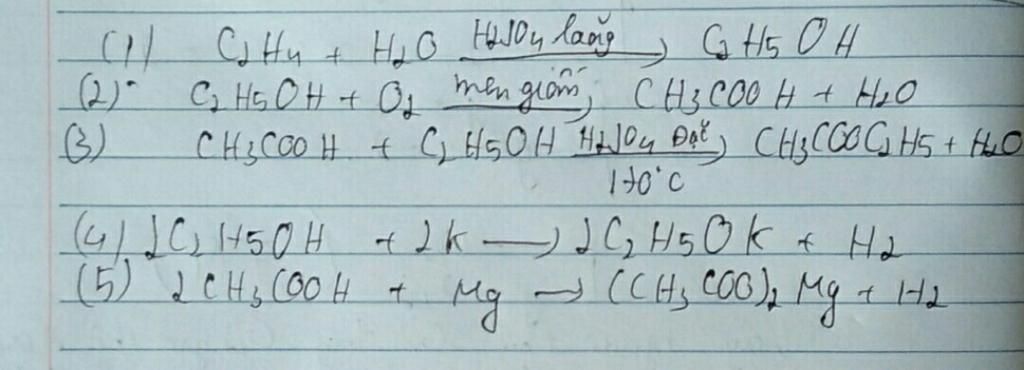 (1) C2H4 + H2O H2SO4 loãng → C2H5OH
(2) C2H5OH + O2 men giấm → CH3COOH + H2O
(3) CH3COOH + C2H5OH H2SO4 Đặc → CH3COOC2H5 + H2O
170°C
(4) 2C2H5OH + 2K → 2C2H5OK + H2
(5) 2CH3COOH + Mg → (CH3COO)2Mg + H2